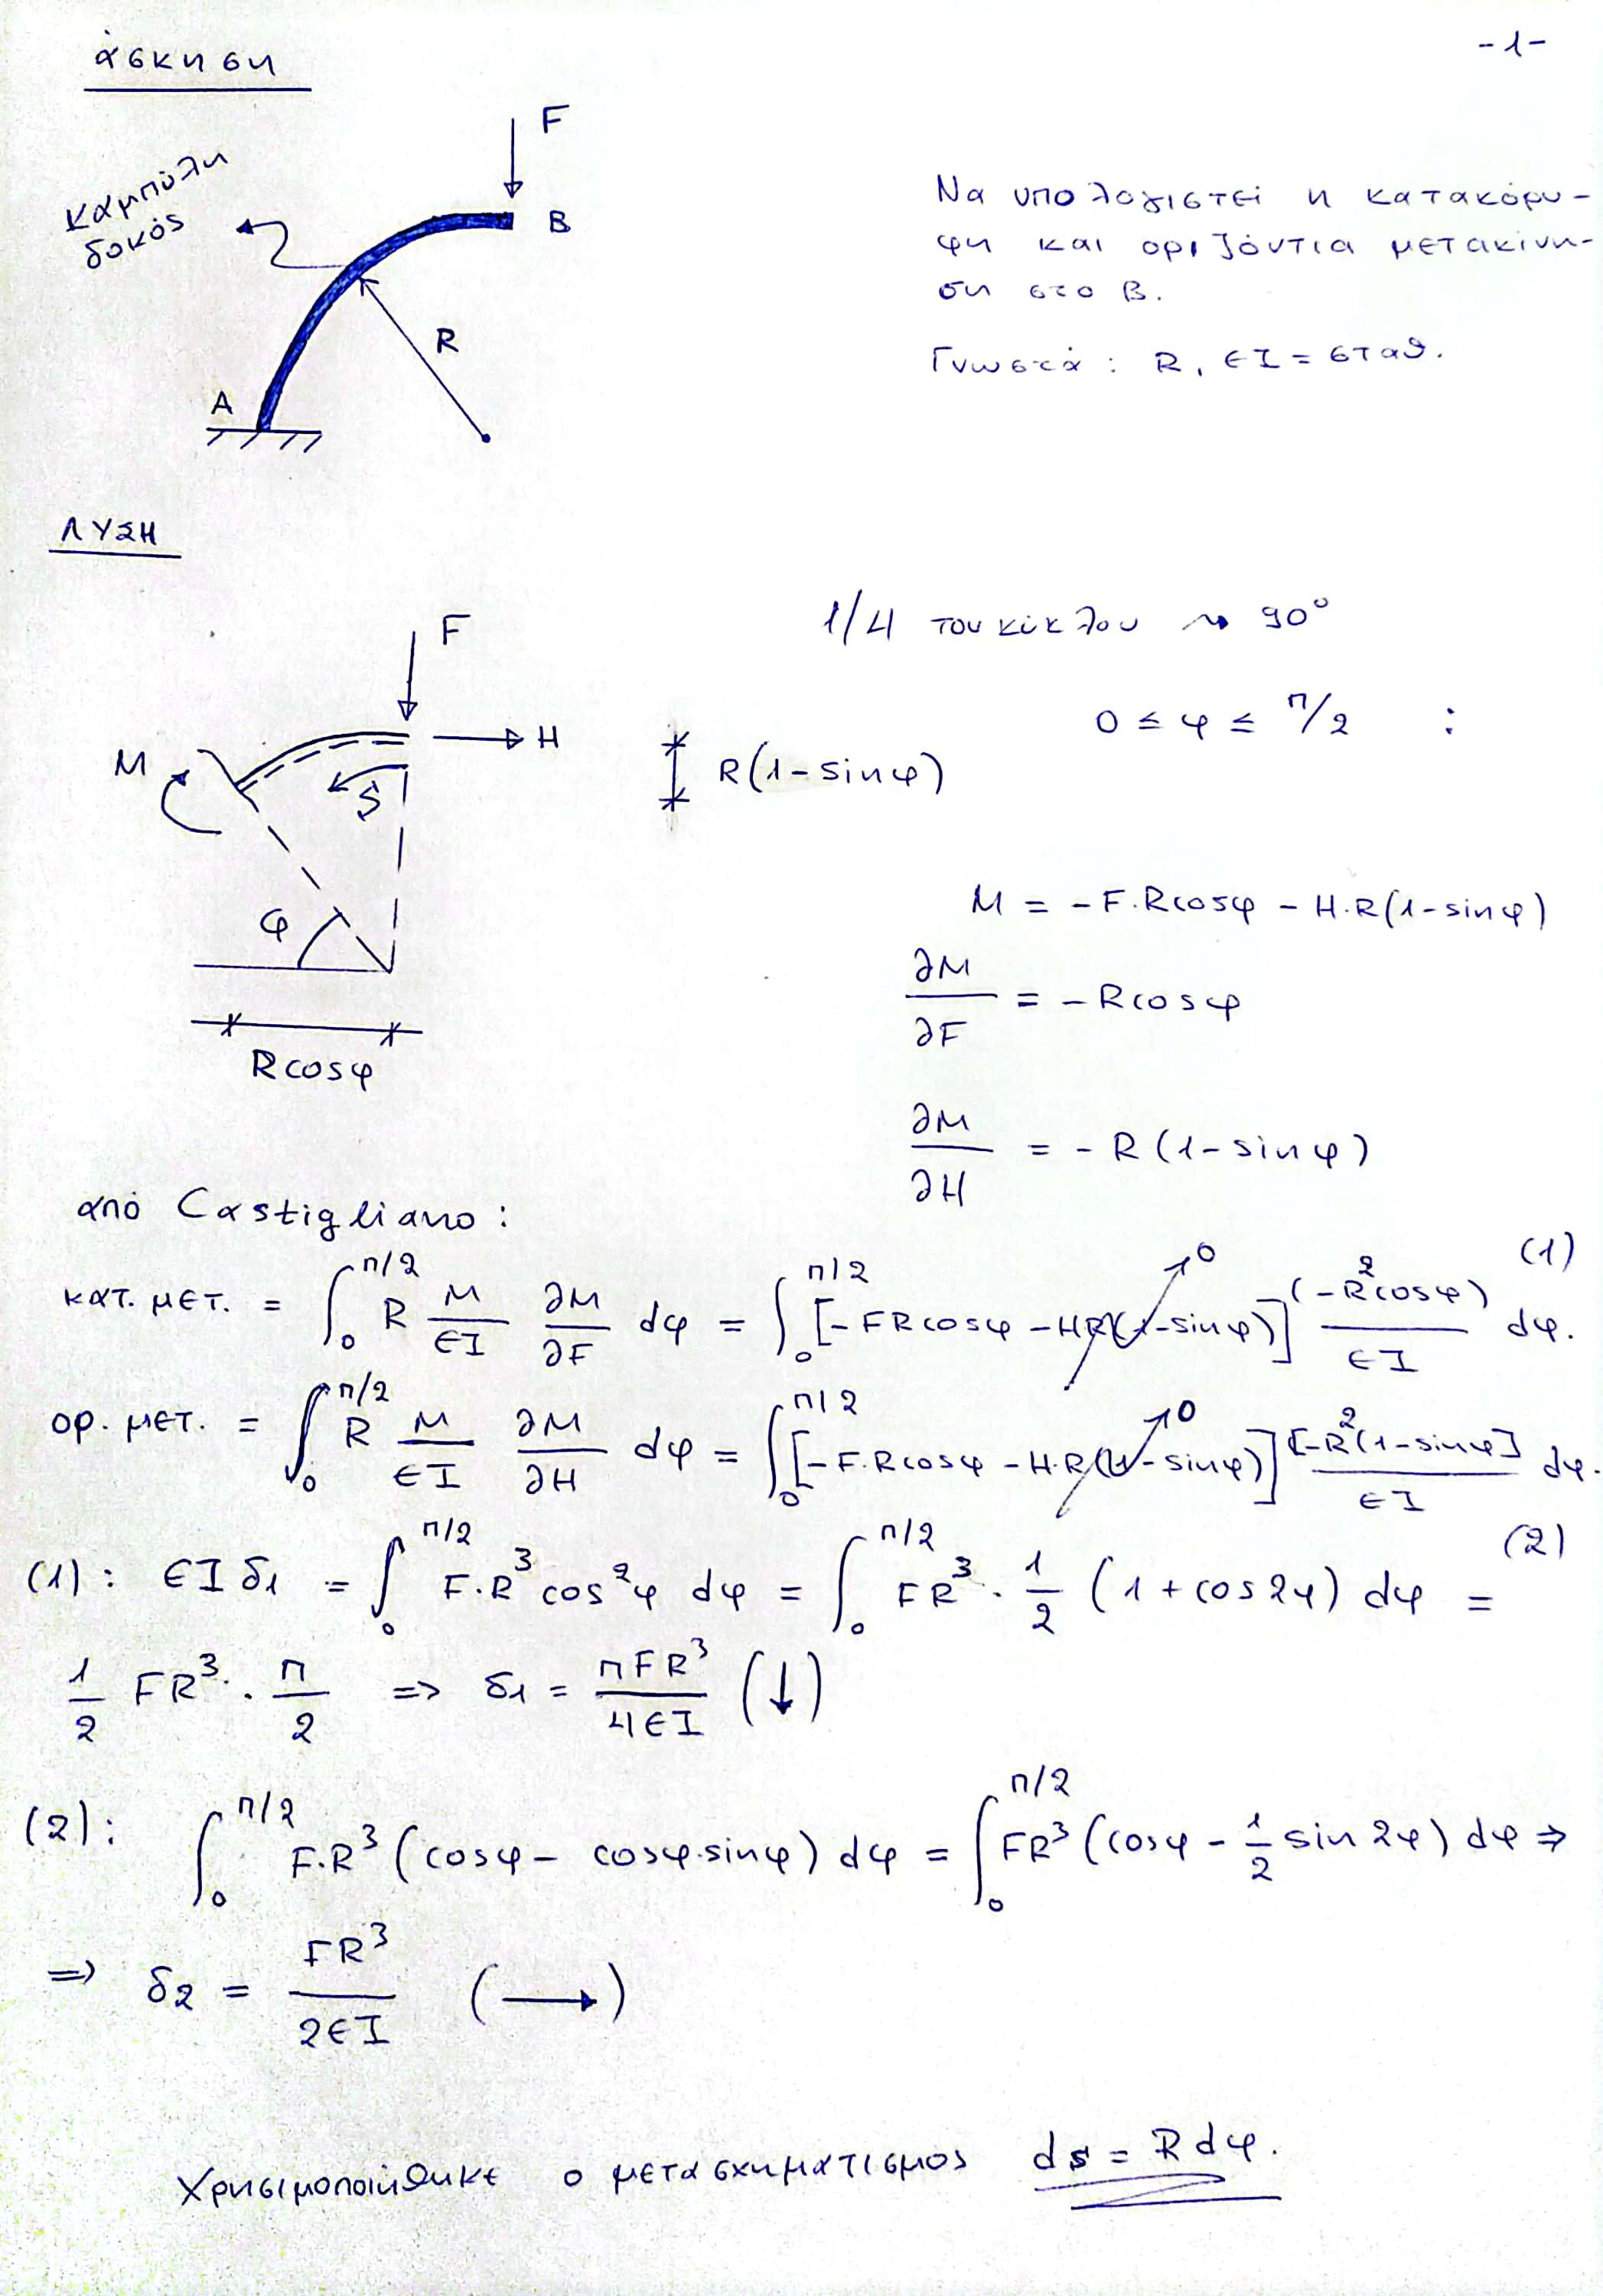 άσκηση
-1-
F
καμπύλη
δοκός
B
R
A
Να υπολογιστεί η κατακόρυ-
φη και οριζόντια μετακίνη-
ση στο B.
Γνωστά : R, EI = σταθ.
ΛΥΣΗ
1/4 του κύκλου ⇝ 90°
F
0 ≤ φ ≤ π/2 :
H
M
S
R(1-sinφ)
φ
M = -F.Rcosφ - H.R(1-sinφ)
∂M/∂F = -Rcosφ
Rcosφ
∂M/∂H = -R(1-sinφ)
από Castigliano :
κατ. μετ. = ∫₀^π/2 R M/EI ∂M/∂F dφ = ∫₀^π/2 [-FRcosφ -HR(1-sinφ)]↗0 (-R²cosφ)/EI dφ. (1)
ορ. μετ. = ∫₀^π/2 R M/EI ∂M/∂H dφ = ∫₀^π/2 [-F.Rcosφ -H.R(1-sinφ)]↗0 [-R²(1-sinφ]/EI dφ. (2)
(1): EIδ1 = ∫₀^π/2 F.R³cos²φ dφ = ∫₀^π/2 FR³·1/2 (1+cos2φ) dφ =
1/2 FR³·π/2 => δ1 = πFR³/4EI (↓)
(2): ∫₀^π/2 F.R³(cosφ- cosφ.sinφ) dφ = ∫₀^π/2 FR³(cosφ - 1/2 sin2φ) dφ ⇒
=> δ2 = FR³/2EI (→)
Χρησιμοποιήθηκε ο μετασχηματισμος ds = Rdφ.